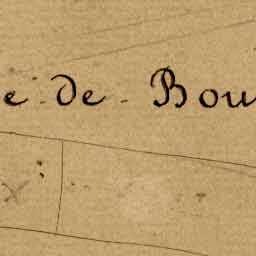 e de Bou